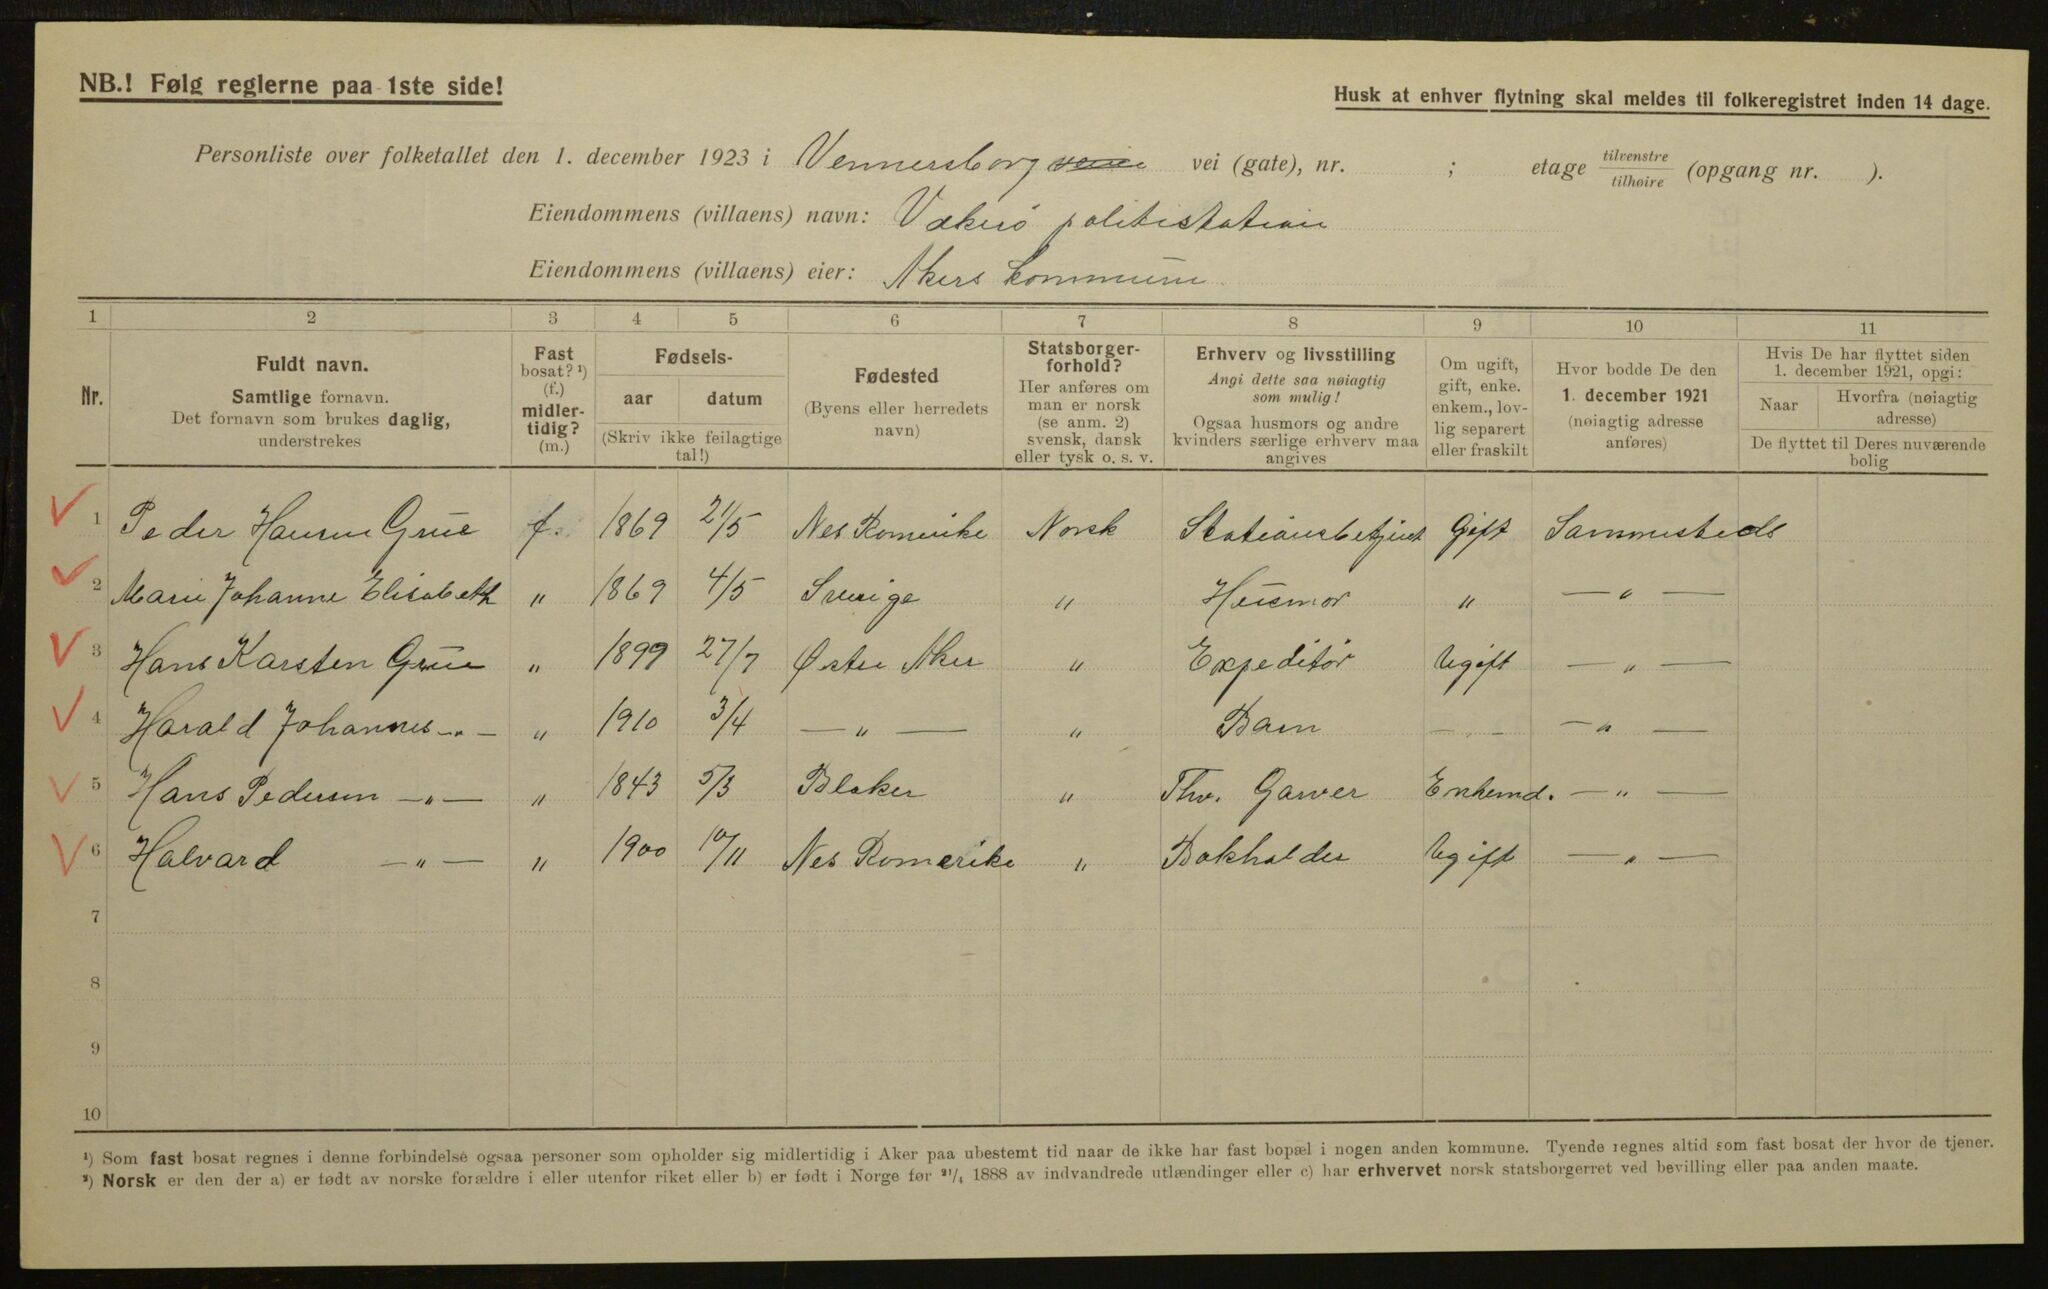 NB.! Følg reglerne paa 1ste side!
Husk at enhver flytning skal meldes til folkeregistret inden 14 dage.
Personliste over folketallet den 1. december 1923 i Vennersborg veien vei (gate), nr. ; etage tilvenstre/tilhøire (opgang nr. ).
Eiendommens (villaens) navn: Vækerö politistation
Eiendommens (villaens) eier: Akers kommune
1 2 3 4 5 6 7 8 9 10 11
Nr.
Fuldt navn.
Samtlige fornavn.
Det fornavn som brukes daglig,
understrekes
Fast
bosat? ¹)
(f.)
midler-
tidig?
(m.)
Fødsels-
aar datum
(Skriv ikke feilagtige
tal!)
Fødested
(Byens eller herredets
navn)
Statsborger-
forhold?
Her anføres om
man er norsk
(se anm. 2)
svensk, dansk
eller tysk o. s. v.
Erhverv og livsstilling
Angi dette saa nøiagtig
som mulig!
Ogsaa husmors og andre
kvinders særlige erhverv maa
angives
Om ugift,
gift, enke.
enkem., lov-
lig separert
eller fraskilt
Hvor bodde De den
1. december 1921
(nøiagtig adresse
anføres)
Hvis De har flyttet siden
1. december 1921, opgi:
Naar
Hvorfra (nøiagtig
adresse)
De flyttet til Deres nuværende
bolig
1 Peder Hansen Grue f. 1869 21/5 Nes Romerike Norsk Stationsbetjent Gift Sammesteds
2 Marie Johanne Elisabeth " 1869 4/5 Sverige " Husmor " — " —
3 Hans Karsten Grue " 1899 27/7 Østre Aker " Expeditör Ugift — " —
4 Harald Johannes — " — " 1910 3/4 — " — " Barn — " — — " —
5 Hans Pedersen — " — " 1843 5/3 Blaker " Fhv. Garver Enkemd. — " —
6 Halvard — " — " 1900 10/11 Nes Romerike " Bokholder Ugift — " —
7
8
9
10
¹) Som fast bosat regnes i denne forbindelse ogsaa personer som opholder sig midlertidig i Aker paa ubestemt tid naar de ikke har fast bopæl i nogen anden kommune. Tyende regnes altid som fast bosat der hvor de tjener.
²) Norsk er den der a) er født av norske forældre i eller utenfor riket eller b) er født i Norge før ²¹/₄ 1888 av indvandrede utlændinger eller c) har erhvervet norsk statsborgerret ved bevilling eller paa anden maate.